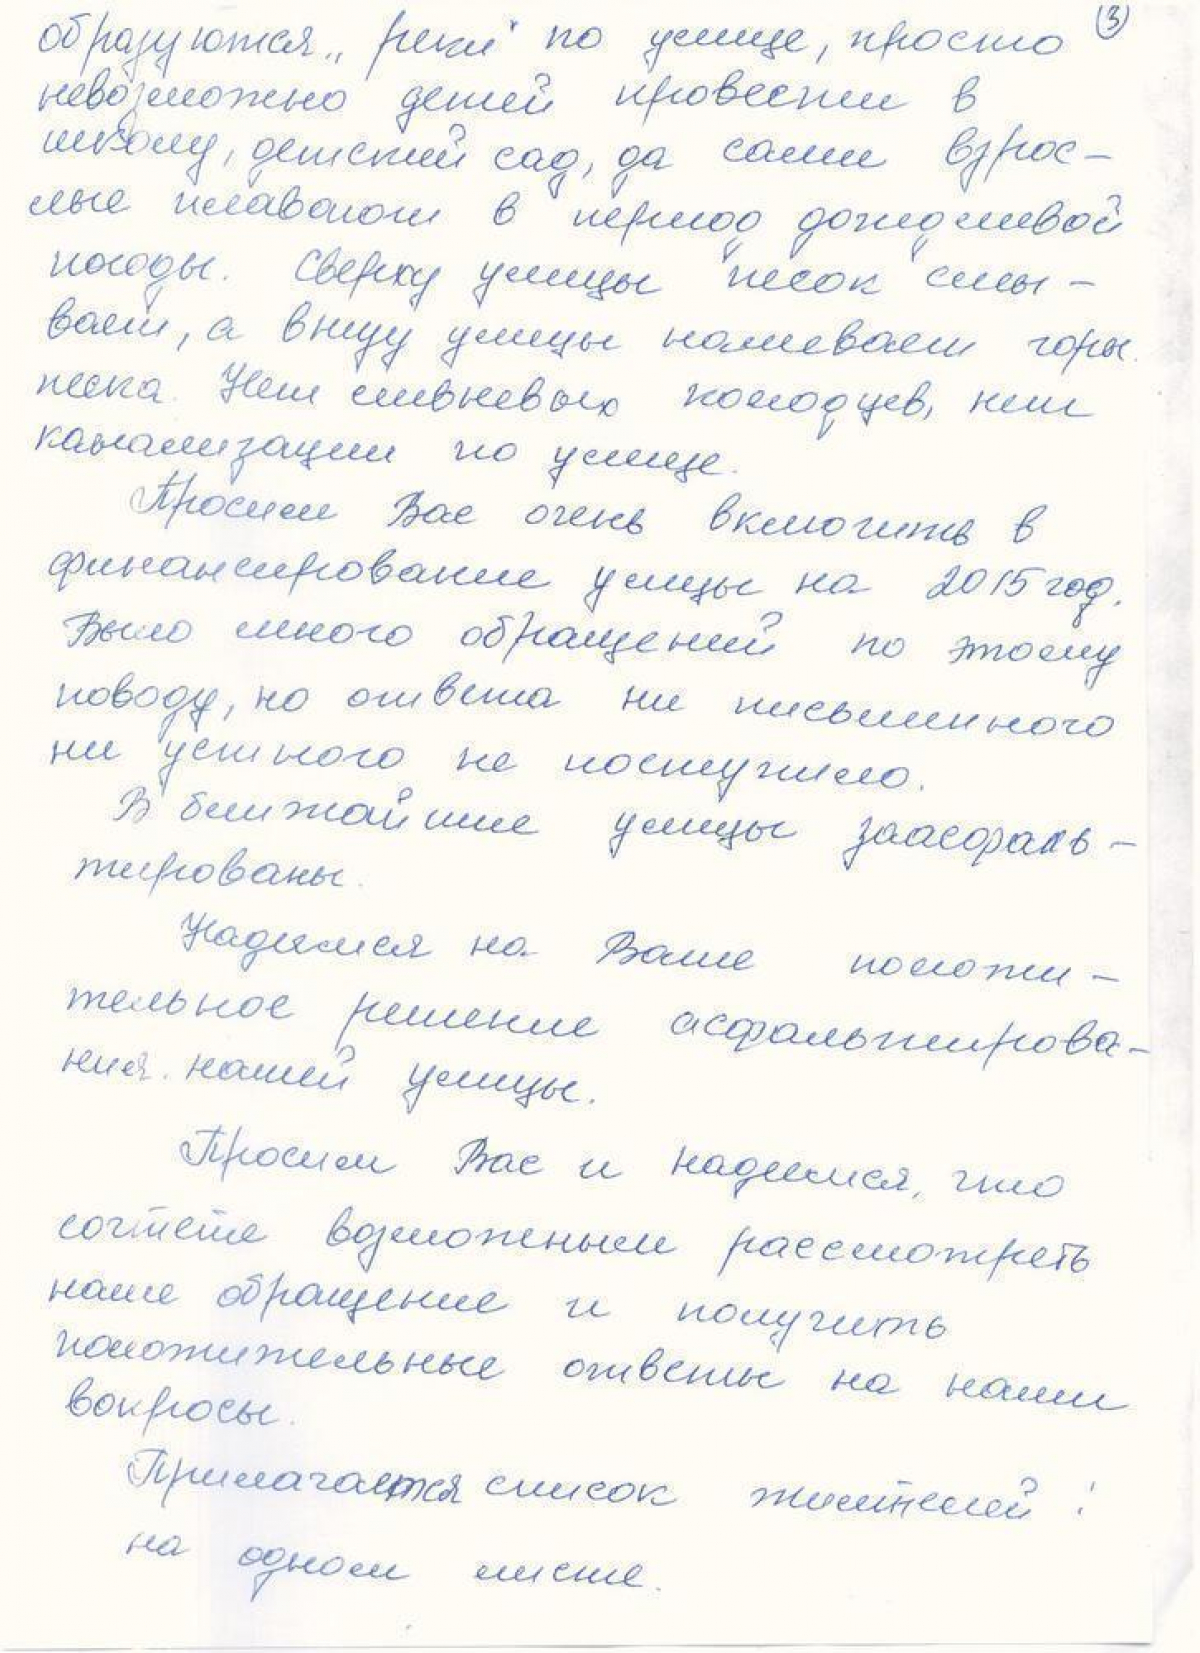 (3)
образуются „реки" по улице, просто
невозможно детей провести в
школу, детский сад, да сами взрос-
лые плавают в период дождливой
погоды. Сверху улицы песок смы-
вает, а внизу улицы намевает горы
песка. Нет ливневых колодцев, нет
канализации по улице.
Просим Вас очень включить в
финансирование улицы на 2015 год.
Было много обращений по этому
поводу, но ответа ни письминного
ни устного не поступило.
В ближайшие улицы заасфаль-
тированы.
Надеимся на Ваше положи-
тельное решение асфальтирова-
ния нашей улицы.
Просим Вас и надеимся, что
сочтете возможным рассмотреть
наше обращение и получить
положительные ответы на наши
вопросы.
Прилагается список жителей:
на одном листе.